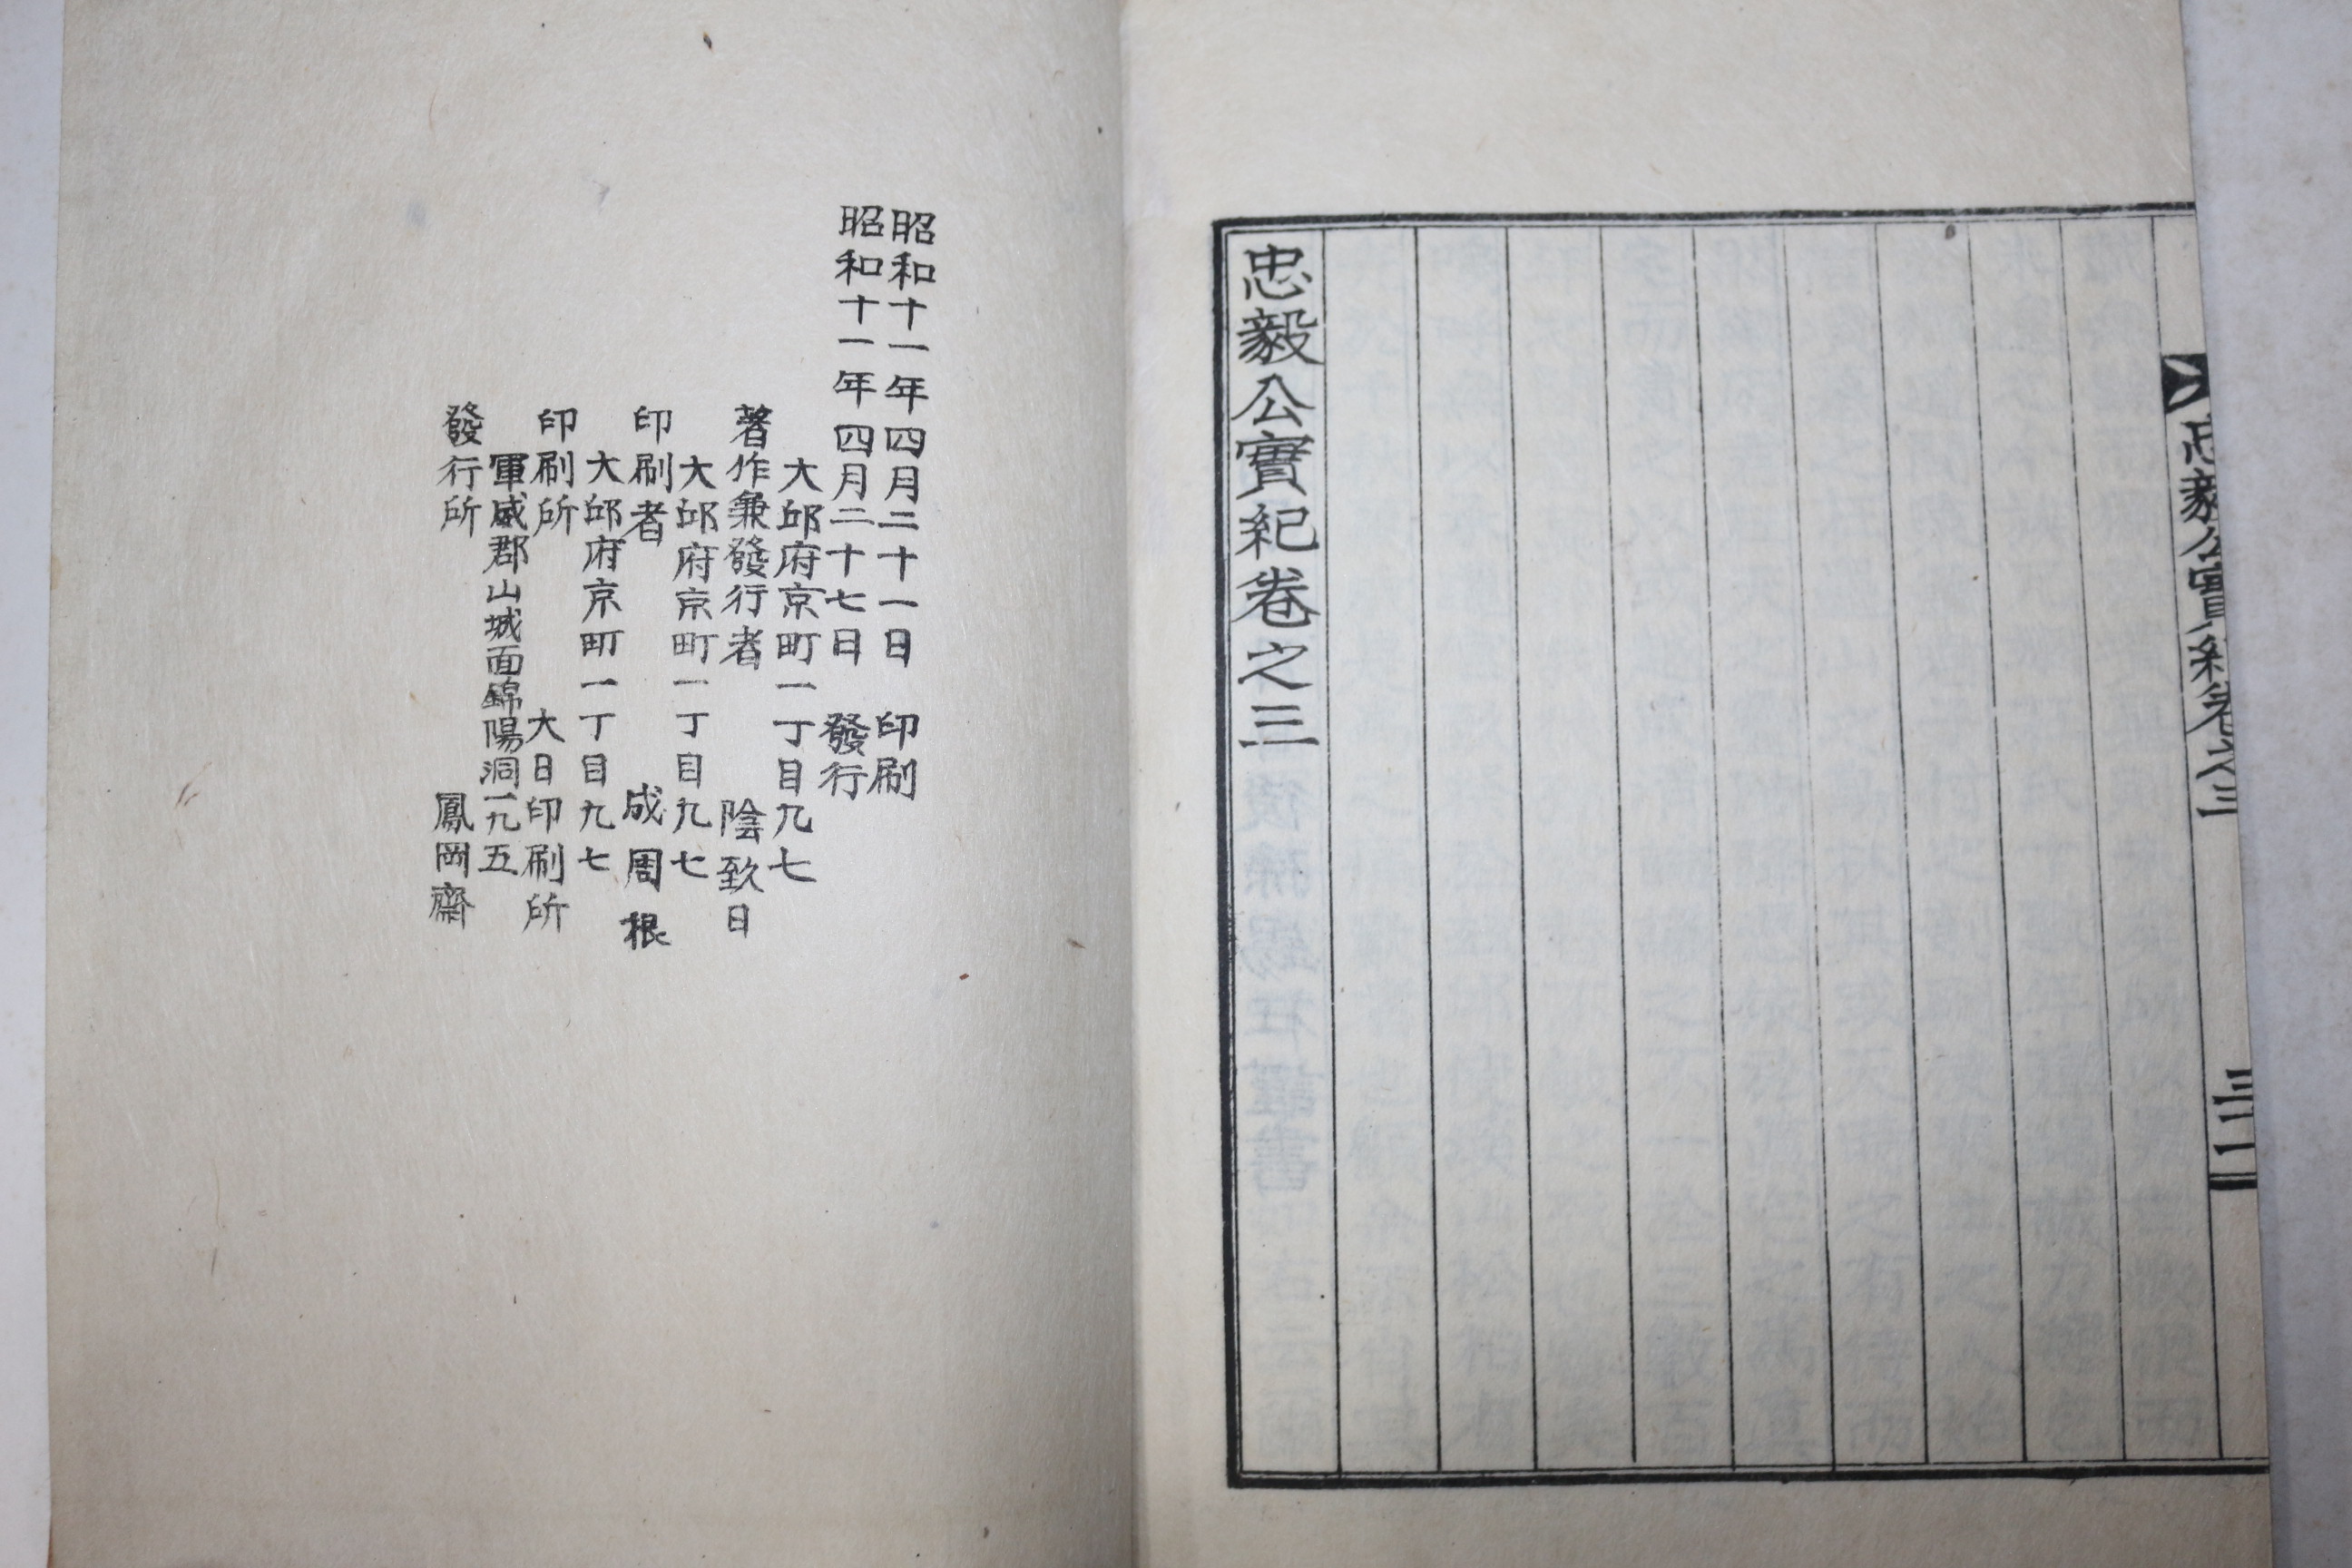 忠毅公實紀卷之三
忠毅公實紀卷之三
昭和十一年四月二十一日 印刷
昭和十一年四月二十七日 發行
大邱府京町一丁目九七
著作兼發行者 陰致日
大邱府京町一丁目九七
印刷者 成周根
大邱府京町一丁目九七
印刷所 大日印刷所
軍威郡山城面錦陽洞一九五
發行所 鳳岡齋